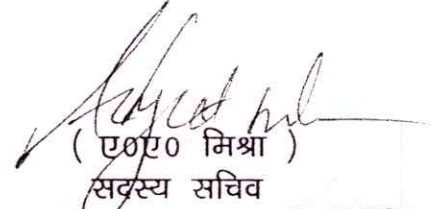 ( ए0ए0 मिश्रा )
सदस्य सचिव